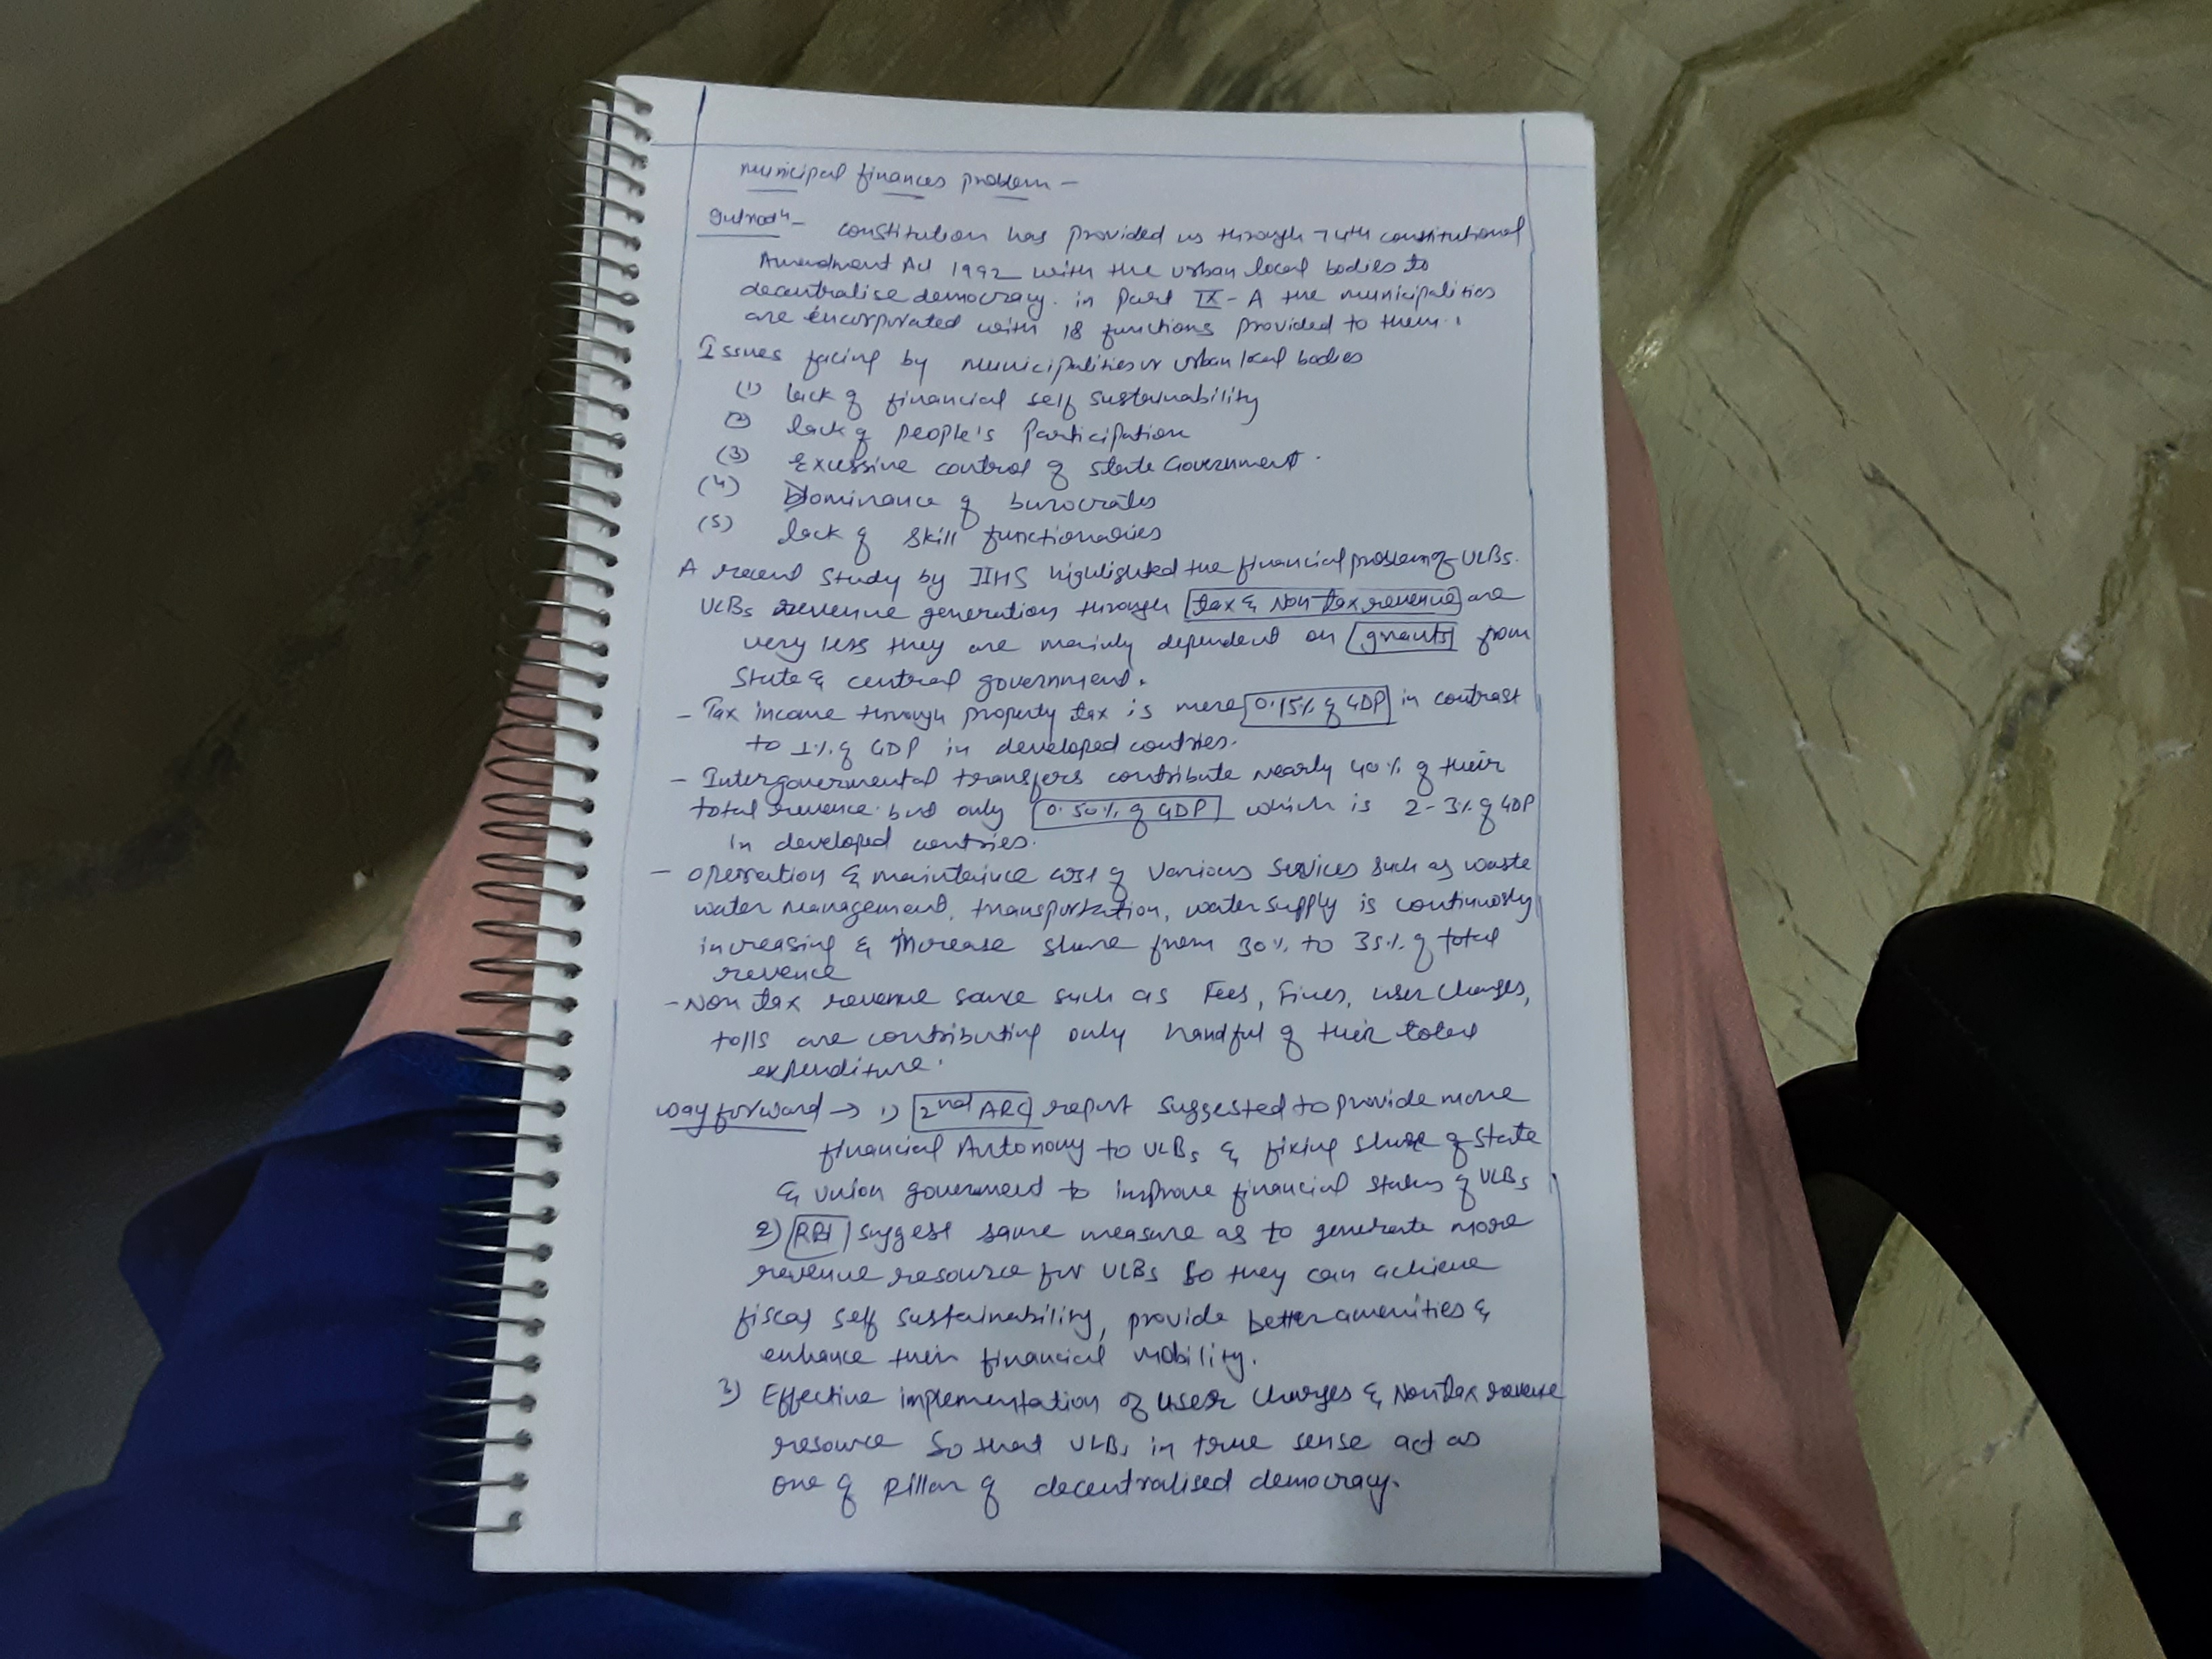 Municipal finances problem -
Introdn - constitution has provided us through 74th constitutional
Amendment Act 1992 with the urban local bodies to
decentralise democracy. in Part IX-A the municipalities
are encorporated with 18 functions provided to them.
Issues facing by municipalities or urban local bodies
(1) lack of financial self sustainability
(2) lack of people's participation
(3) Excessive control of State Government.
(4) Dominance of burocrates
(5) lack of skill functionaries
A recent study by IIHS highlighted the financial problem of ULBs.
ULBs revenue generation through tax & Non tax revenue are
very less they are mainly dependent on grants from
State & central government.
- Tax income through property tax is mere 0.15% of GDP in contrast
to 1% of GDP in developed contries.
- Intergovermental transfers contribute nearly 40% of their
total revence but only 0.50% of GDP which is 2-3% of GDP
in developed contries.
- operation & maintaince cost of various services such as waste
water management, transportation, water supply is continuosly
increasing & increase share from 30% to 35% of total
revence
- Non tax revenue source such as Fees, Fines, user charges,
tolls are contributing only handful of their total
expenditure.
way forward → 1) 2nd ARC report suggested to provide more
financial Autonomy to ULBs & fixing share of State
& Union government to improve financial status of ULBs
2) RBI suggest same measure as to generate more
revenue resource for ULBs so they can achieve
fiscal self sustainability, provide better amenities &
enhance their financial mobility.
3) Effective implementation of user charges & Non tax revenue
resource so that ULBs in true sense act as
one of pillar of decentralised democracy.